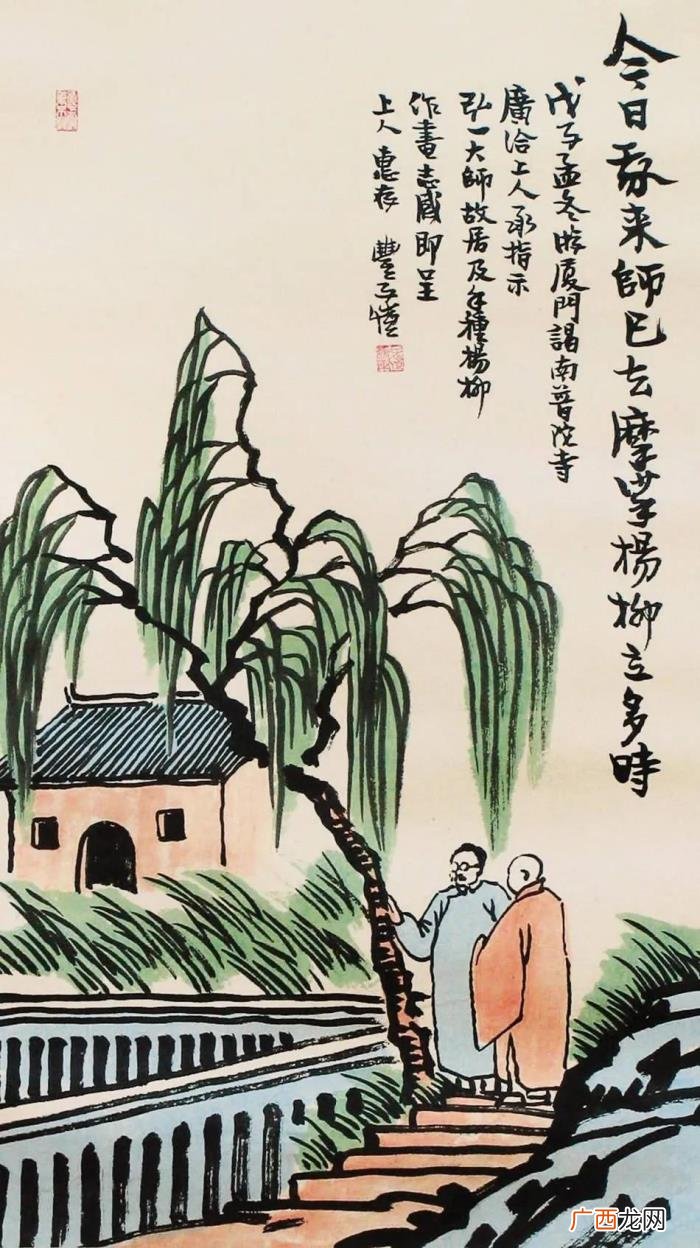 今日我来師已去摩挲楊柳立多時
戊子孟冬游厦門謁南普陀寺
廣洽上人承指示
弘一大師故居及手種楊柳
作畫志感即呈
上人惠存 豐子愷
广西龙网